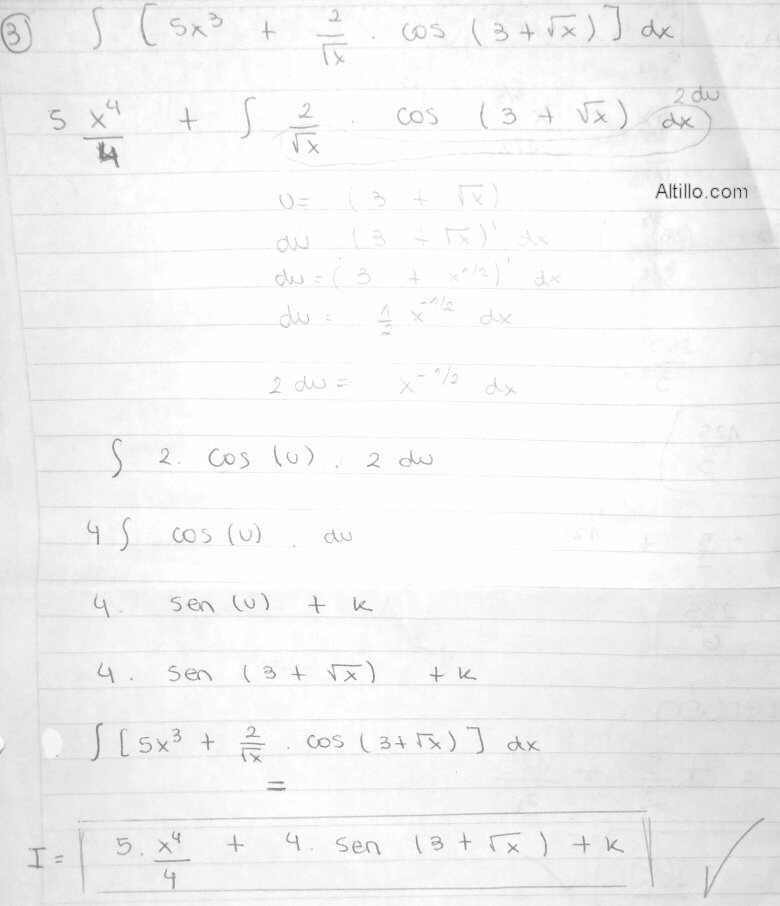 ③ ∫ [ 5x³ + 2/√x · cos (3 + √x) ] dx
2 du
5 x⁴/4 + ∫ 2/√x · cos (3 + √x) dx
Altillo.com
u = (3 + √x)
du (3 + √x)' dx
du = (3 + x^1/2)' dx
du = 1/2 x^-1/2 dx
2 du = x^-1/2 dx
∫ 2 . cos (u) . 2 du
4 ∫ cos (u) . du
4 . sen (u) + k
4 . sen (3 + √x) + k
∫ [ 5x³ + 2/√x . cos (3+√x) ] dx
=
I = 5 . x⁴/4 + 4 . sen (3 + √x) + k